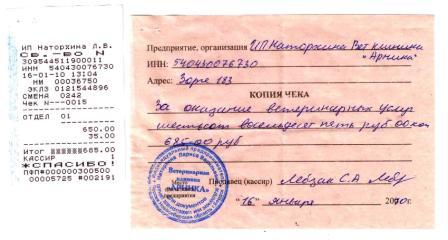 ИП Наторхина Л.В.
СВ.-ВО N
309544511900011
ИНН 540430076730
16-01-10 13104
НМ 00036750
ЭКЛЗ 0121544896
СМЕНА 0242
Чек N---0015
ОТДЕЛ 01
650.00
35.00
Итог 685.00
КАССИР 1
*СПАСИБО!
ПФП#000000300500
00005725 #002191
Предприятие, организация ИП Наторхина Вет клиника
"Арника"
ИНН: 540430076730
Адрес: Зорге 183
КОПИЯ ЧЕКА
За оказание ветеринарных услуг
шестьсот восемьдесят пять руб 00 коп
685-00 руб
Ветеринарная
клиника
"АРНИКА"
Для документов
(кассир) Лебзак С.А
"16" января 2010г.